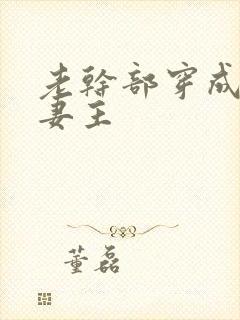 老幹部穿成
妻王
董磊